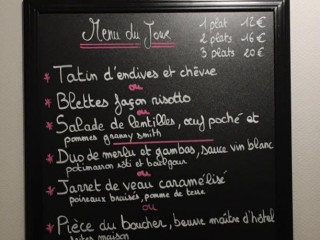 Menu du Jour
1 plat 12€
2 plats 16€
3 plats 20€
* Tatin d'endives et chèvre
ou
* Blettes façon risotto
ou
* Salade de lentilles, œuf poché et
pommes granny smith
* Duo de merlu et gambas, sauce vin blanc
potimarron rôti et boulgour
ou
* Jarret de veau caramélisé
poireaux braisés, pomme de terre
ou
* Pièce du boucher, beurre maître d'hôtel
frites maison